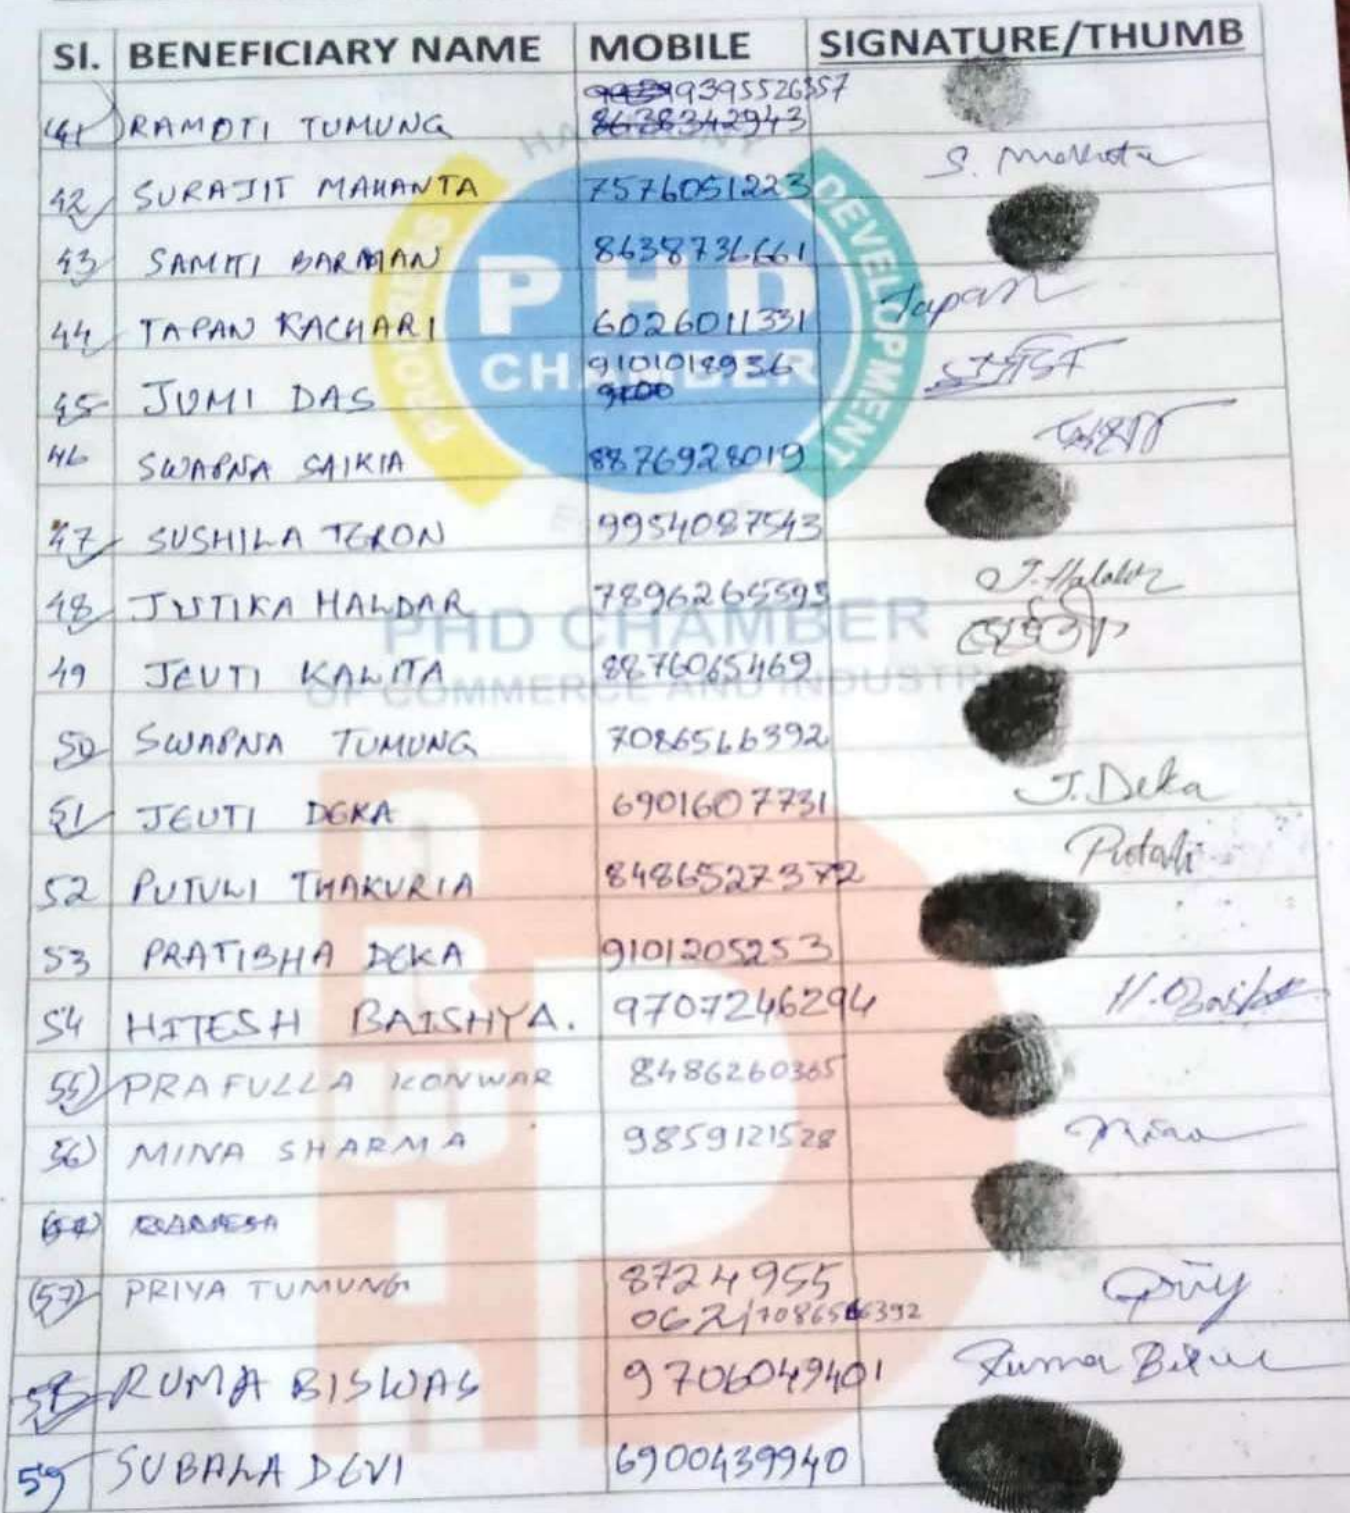 Sl. BENEFICIARY NAME MOBILE SIGNATURE/THUMB
9395526357
41 RAMOTI TUMUNG 8638342943
42 SURAJIT MAHANTA 7576051223 S. Mahanta
43 SAMITI BARMAN 8638736661
44 TAPAN KACHARI 6026011331 Tapan
9101018936
45 JUMI DAS
46 SWAPNA SAIKIA 8876928019
47 SUSHILA TERON 9954087543
48 JUTIKA HALDAR 7896265593 J. Haldar
49 JEUTI KALITA 8876065469
50 SWAPNA TUMUNG 7086566392
51 JEUTI DEKA 6901607731 J. Deka
52 PUTULI THAKURIA 8486527372 Putali
53 PRATIBHA DEKA 9101205253
54 HITESH BAISHYA. 9707246294
55) PRAFULLA KONWAR 8486260365
56) MINA SHARMA 9859121528 Mina
(57) PRIYA TUMUNG 8724955
062/7086566392
58 RUMA BISWAS 9706049401 Ruma Biswas
59 SUBALA DEVI 6900439940
HARMONY
PROGRESS
DEVELOPMENT
PHD
CHAMBER
PHD CHAMBER
OF COMMERCE AND INDUSTRY